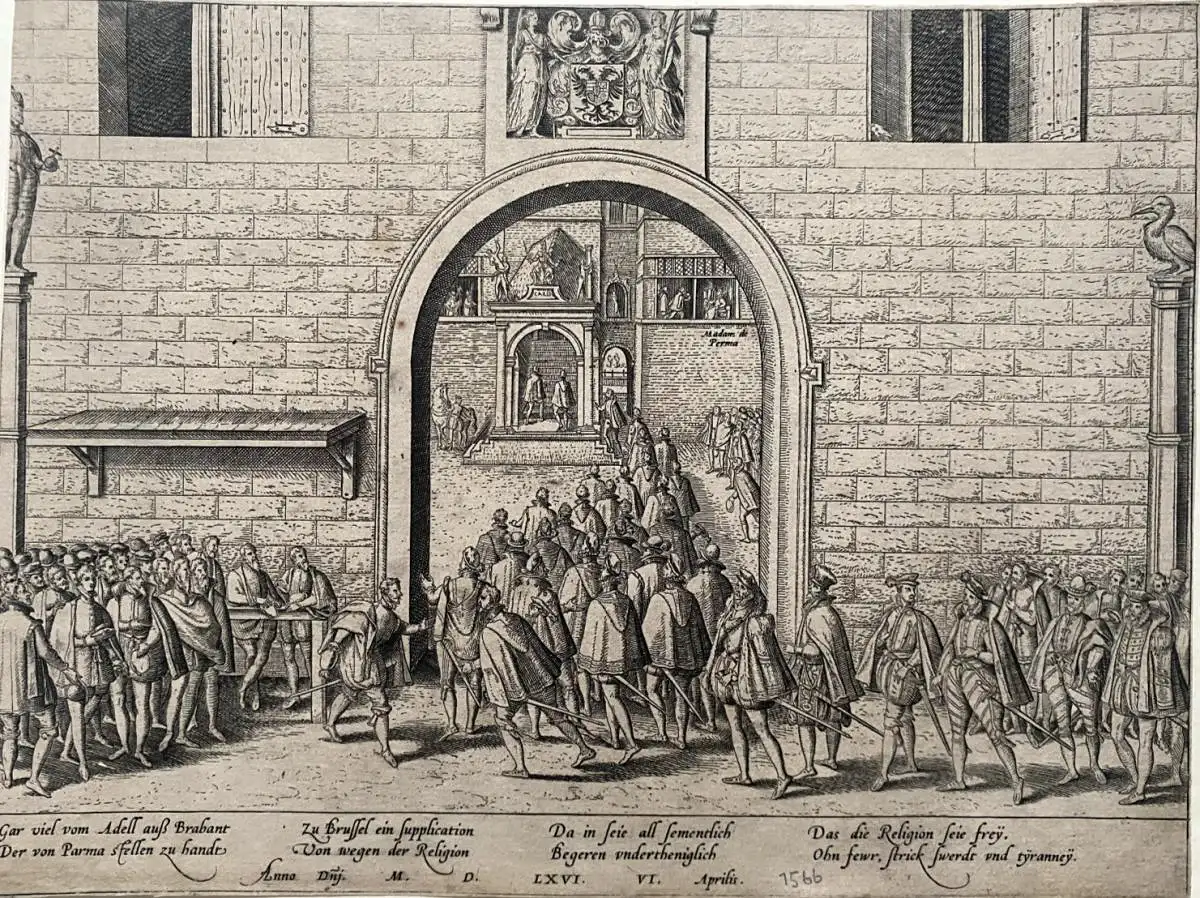 Madam de
Perma
Gar viel vom Adell auß Brabant
Der von Parma stellen zu handt
Zu Brussel ein supplication
Von wegen der Religion
Da in seie all sementlich
Begeren vndertheniglich
Das die Religion seie freÿ.
Ohn fewr, strick swerdt vnd tÿranneÿ.
Anno Dnĩj. M. D. LXVI. VI. Aprilis. 1566